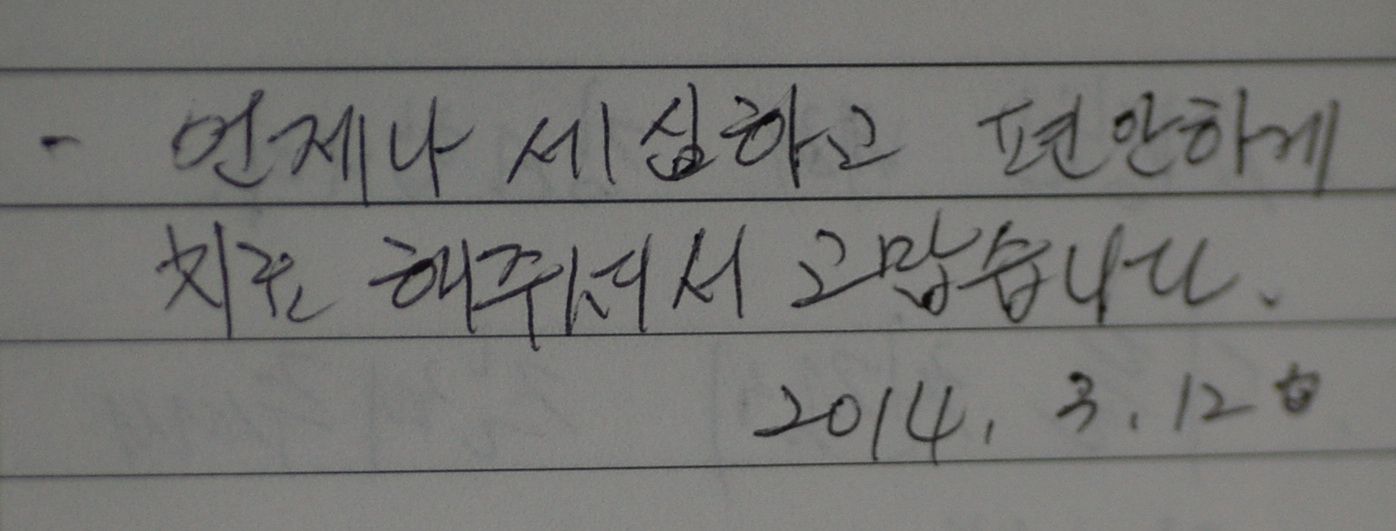 - 언제나 세심하고 편안하게
치료 해주셔서 고맙습니다.
2014. 3. 12